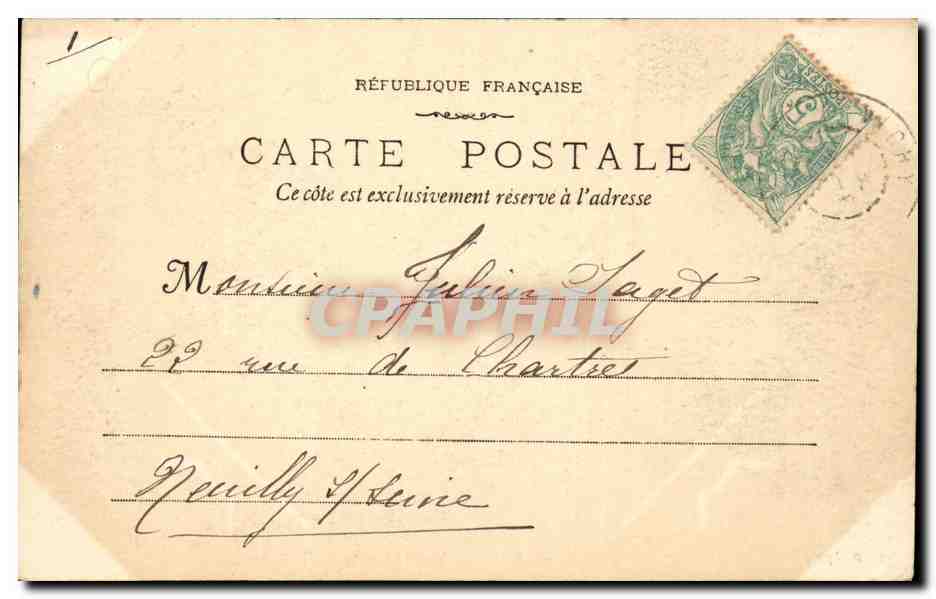 1
RÉPUBLIQUE FRANÇAISE
CARTE POSTALE
Ce côte est exclusivement réserve à l'adresse
Monsieur Julien Taget
22 rue de Chartres
Neuilly s/ Seine
CPAPHIL
5